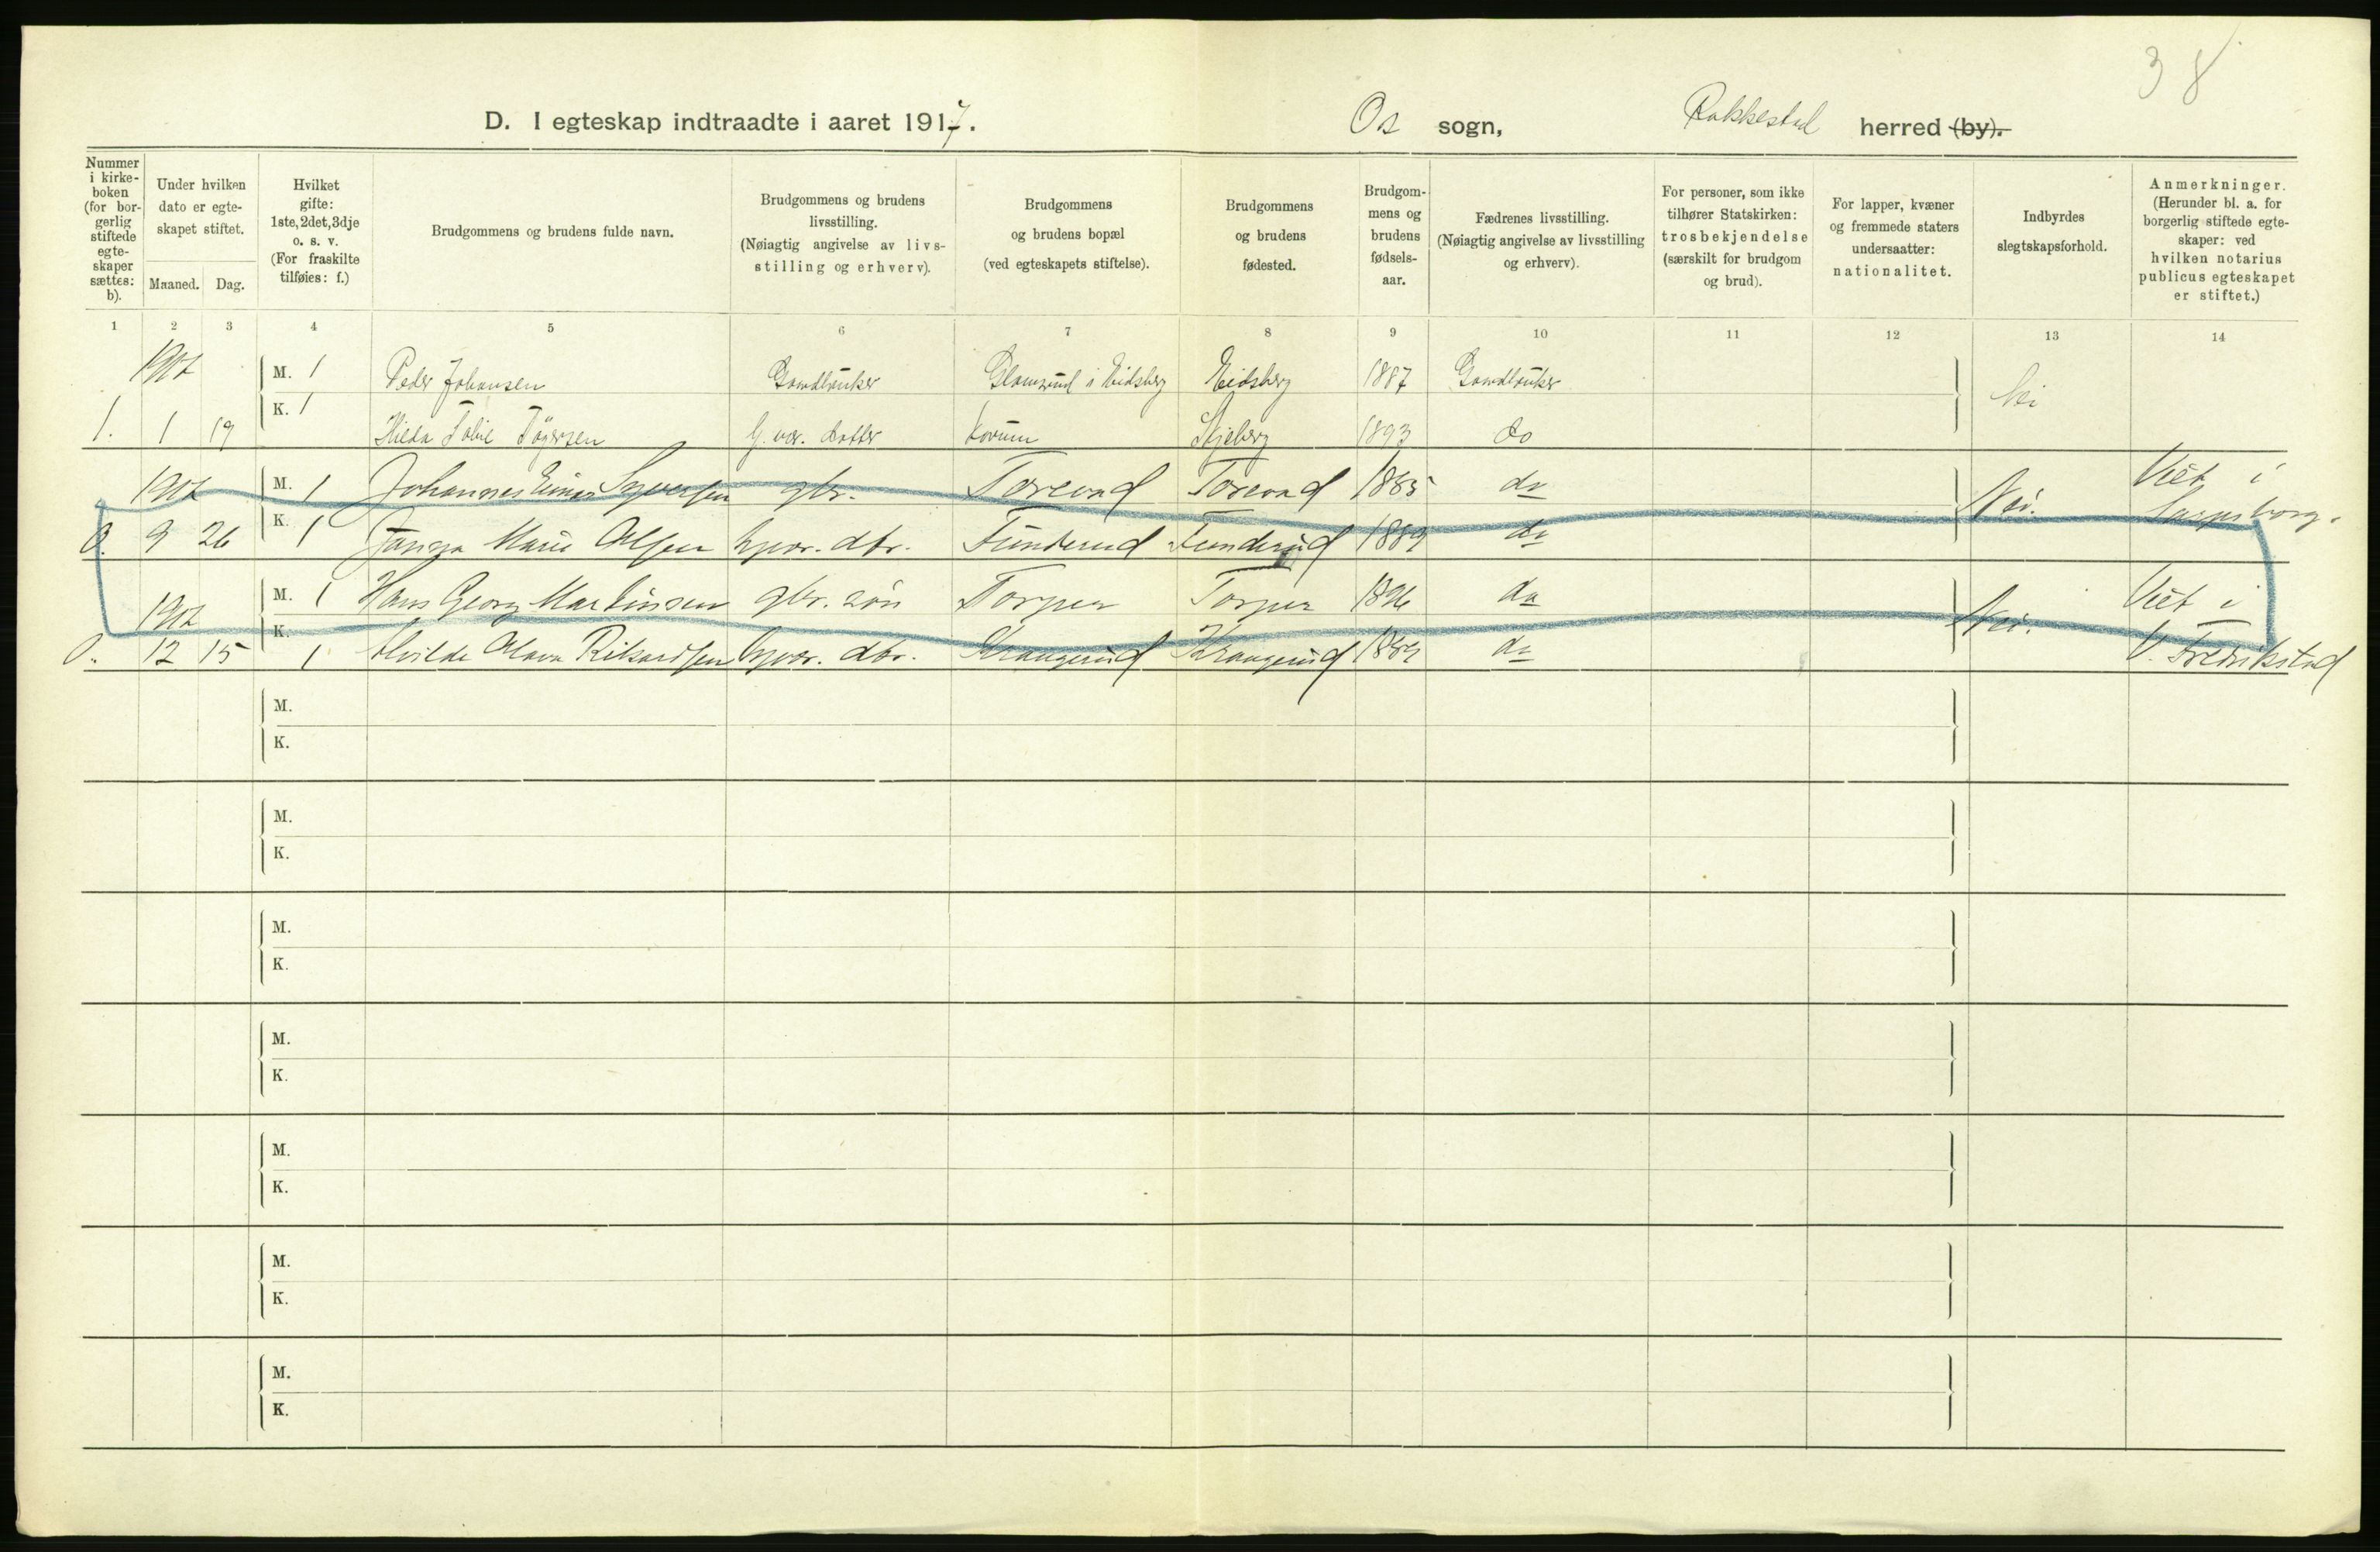 38
D. I egteskap indtraadte i aaret 1917.
Os sogn, Rakkestad herred (by).
Nummer i kirke-boken (for bor-gerlig stiftede egte-skaper sættes: b).
Under hvilken dato er egte-skapet stiftet.
Maaned. Dag.
Hvilket gifte: 1ste, 2det, 3dje o. s. v. (For fraskilte tilføies: f.)
Brudgommens og brudens fulde navn.
Brudgommens og brudens livsstilling. (Nøiagtig angivelse av livs-stilling og erhverv).
Brudgommens og brudens bopæl (ved egteskapets stiftelse).
Brudgommens og brudens fødested.
Brudgom-mens og brudens fødsels-aar.
Fædrenes livsstilling. (Nøiagtig angivelse av livsstilling og erhverv).
For personer, som ikke tilhører Statskirken: trosbekjendelse (særskilt for brudgom og brud).
For lapper, kvæner og fremmede staters undersaatter: nationalitet.
Indbyrdes slegtskapsforhold.
Anmerkninger. (Herunder bl. a. for borgerlig stiftede egte-skaper: ved hvilken notarius publicus egteskapet er stiftet.)
1 2 3 4 5 6 7 8 9 10 11 12 13 14
1917 M. 1 Peder Johansen Gaardbruker i Eidsberg Eidsberg 1887 Gaardbruker Nei
1. 1 19 K. 1 G. br. datter Skjeberg 1893 do
1917 M. 1 Johannes Einar Syversen gbr. 1885 do Nei. Viet i Sarpsborg.
0. 9 26 K. 1 Marie Olsen hjvær. dtr. Funderud Funderud 1889 do
1917 M. 1 Hans Georg Martinsen gbr. søn Torper Torper 1896 do Nei. Viet i
0. 12 15 K. 1 Olava Rikardsen hjvær. dtr. Krangerud Krangerud 1889 do V. Fredrikstad
M.
K.
M.
K.
M.
K.
M.
K.
M.
K.
M.
K.
M.
K.